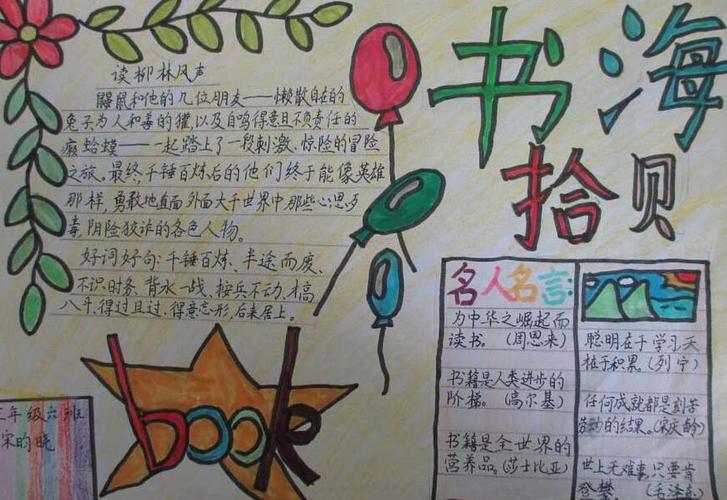 书海
拾贝
读柳林风声
鼹鼠和他的几位朋友——懒散自在的
兔子为人和毒的獾,以及自鸣得意且不负责任的
癞蛤蟆——一起踏上了一段刺激、惊险的冒险
之旅。最终,千锤百炼后的他们终于能像英雄
那样,勇敢地直面外面大千世界中那些心思歹
毒,阴险狡诈的各色人物。
好词好句:千锤百炼、半途而废、
不识时务、背水一战、按兵不动、才高
八斗、得过且过、得意忘形、后来居上。
book
年级六班
宋昀晓
名人名言:
为中华之崛起而
读书。(周恩来)
书籍是人类进步的
阶梯。(高尔基)
书籍是全世界的
营养品。(莎士比亚)
聪明在于学习,天
在于积累。(列宁)
任何成就都是刻苦
劳动的结果。(宋庆龄)
世上无难事,只要肯
登攀(毛泽东)